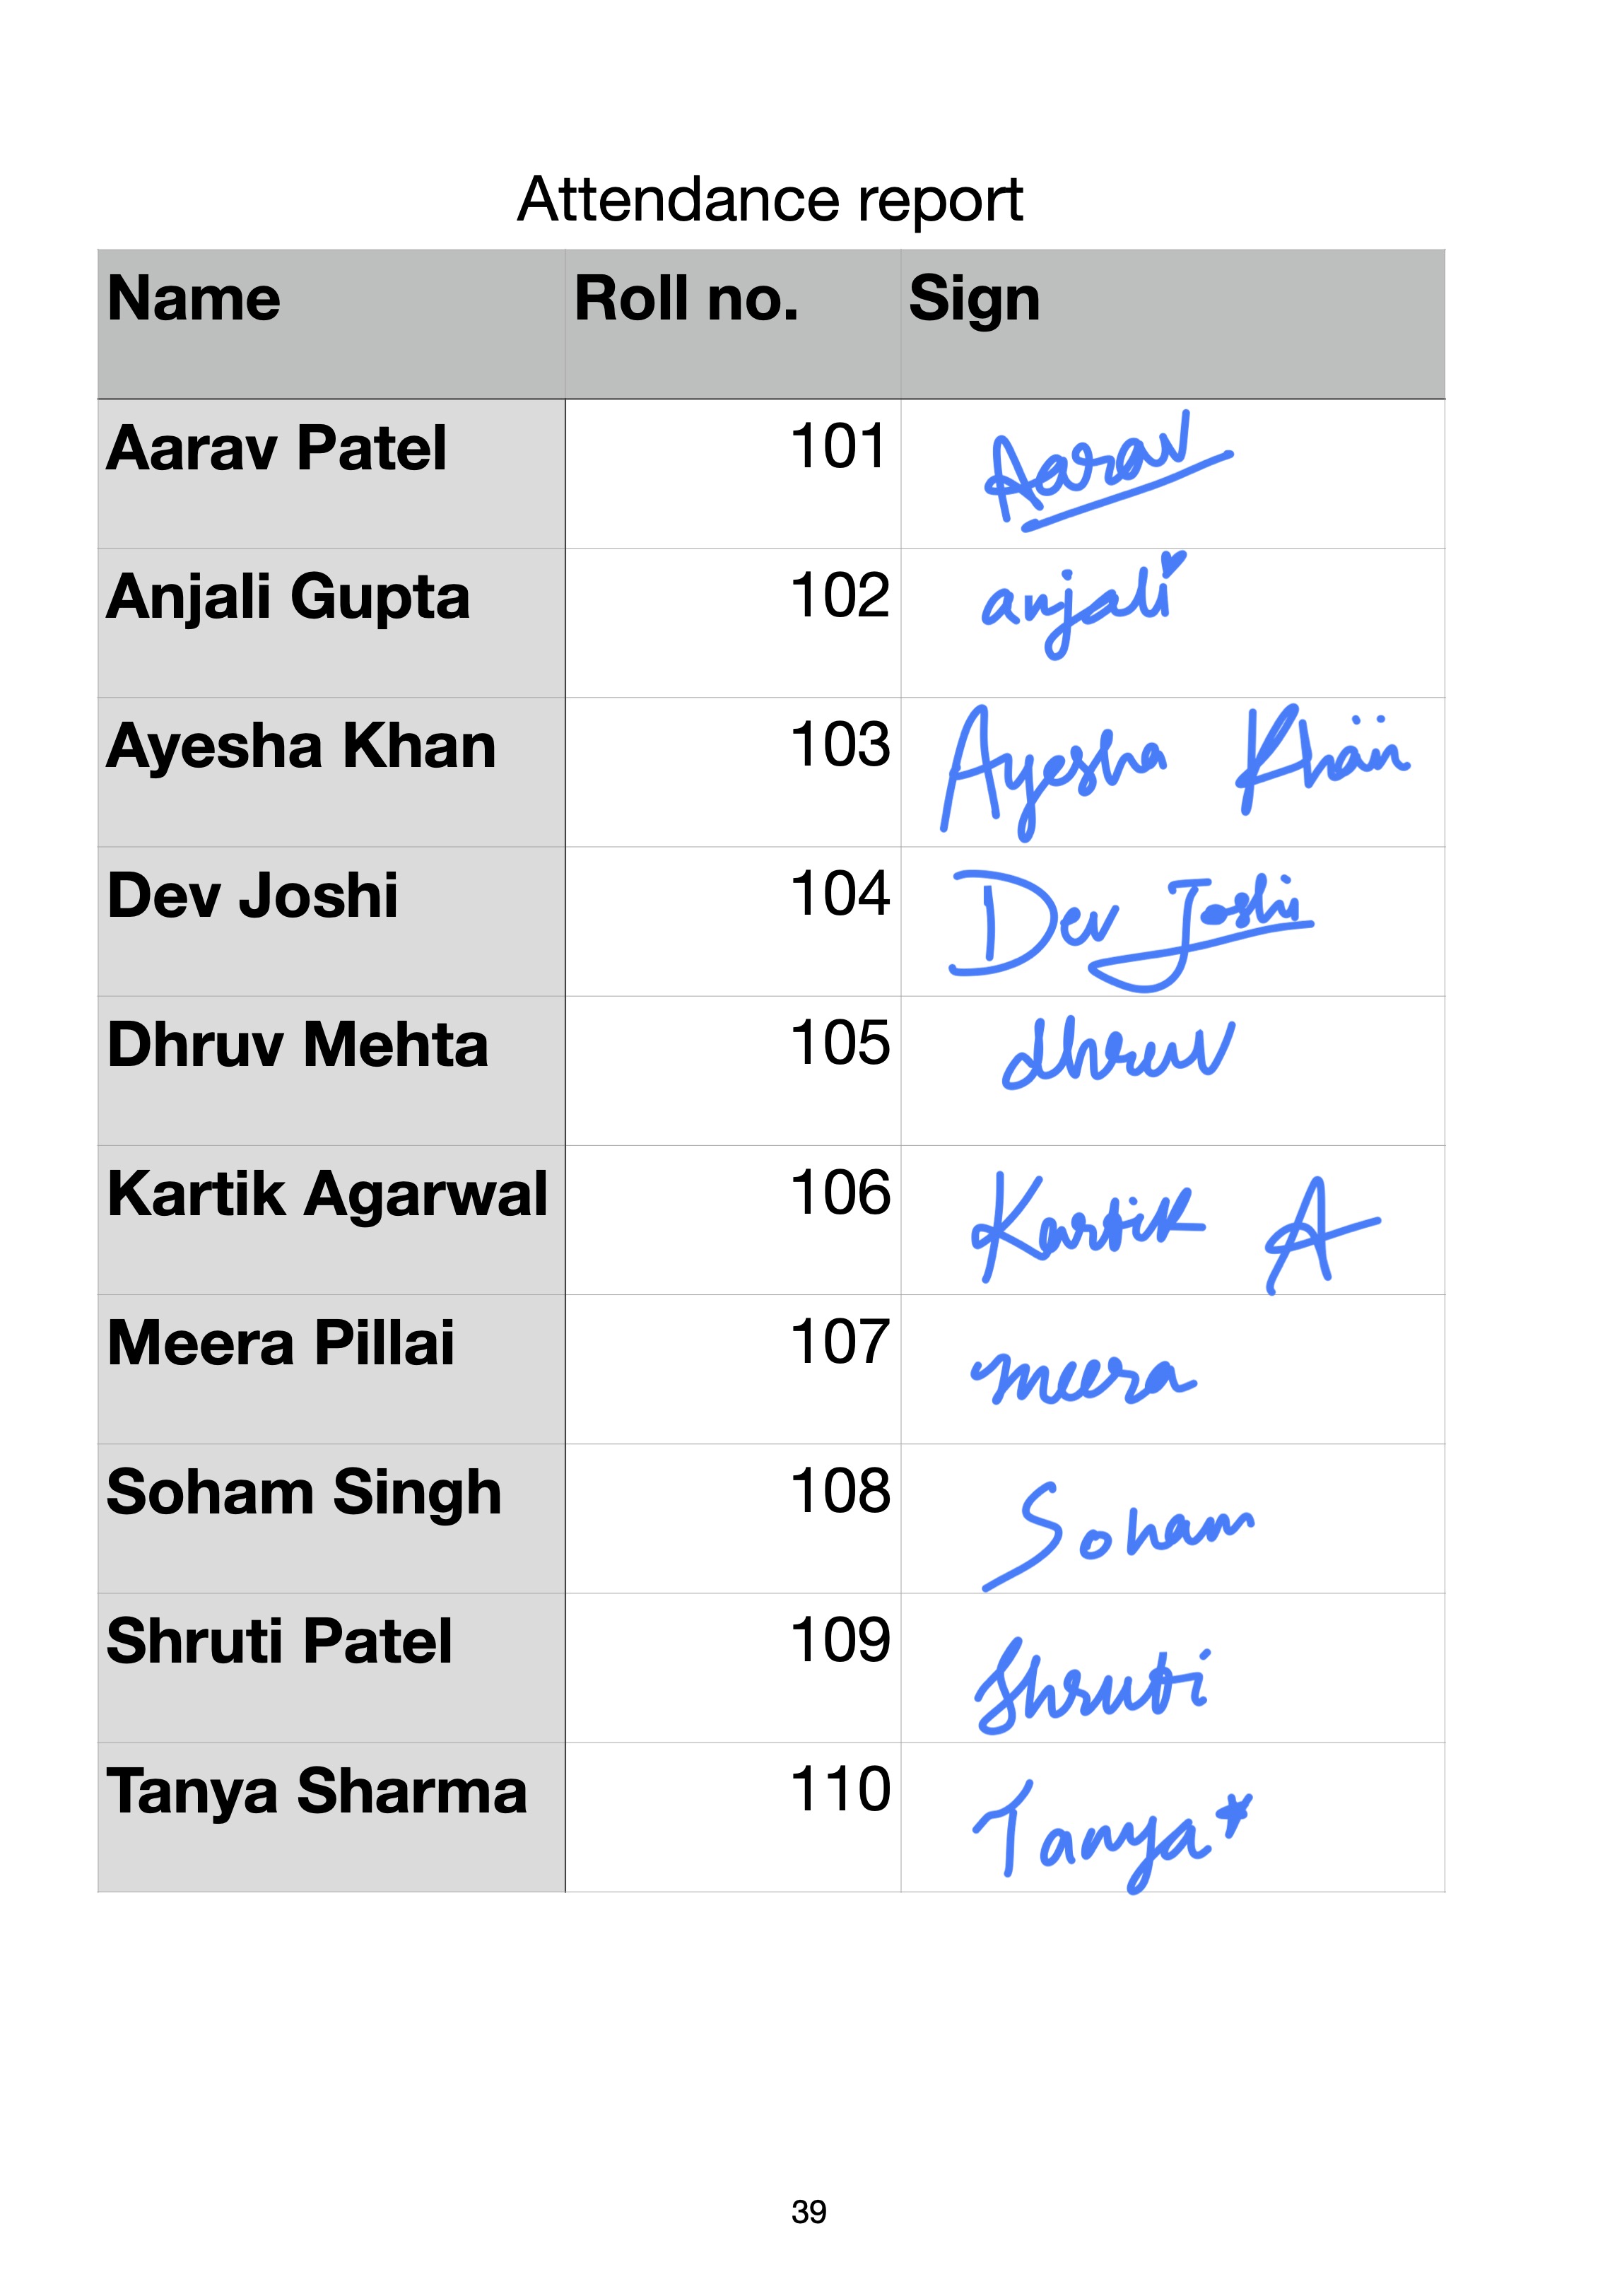 Attendance report
Name Roll no. Sign
Aarav Patel 101 Aarav
Anjali Gupta 102 anjali
Ayesha Khan 103 Ayesha Khan
Dev Joshi 104 Dev Joshi
Dhruv Mehta 105 dhruv
Kartik Agarwal 106 Kartik A
Meera Pillai 107 meera
Soham Singh 108 Soham
Shruti Patel 109 Shruti
Tanya Sharma 110 Tanya
39